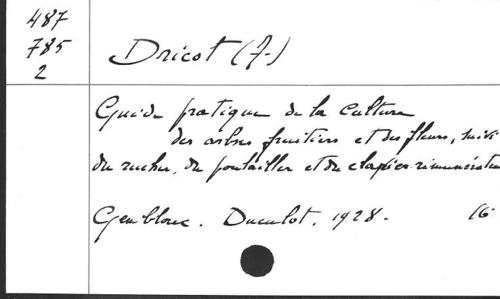 487
785
2
Dricot (J.)
Guide pratique de la Culture
des arbres fruitiers et des fleurs, suivi
du rucher, du poulailler et du clapier
Gembloux. Duculot. 1928. 16